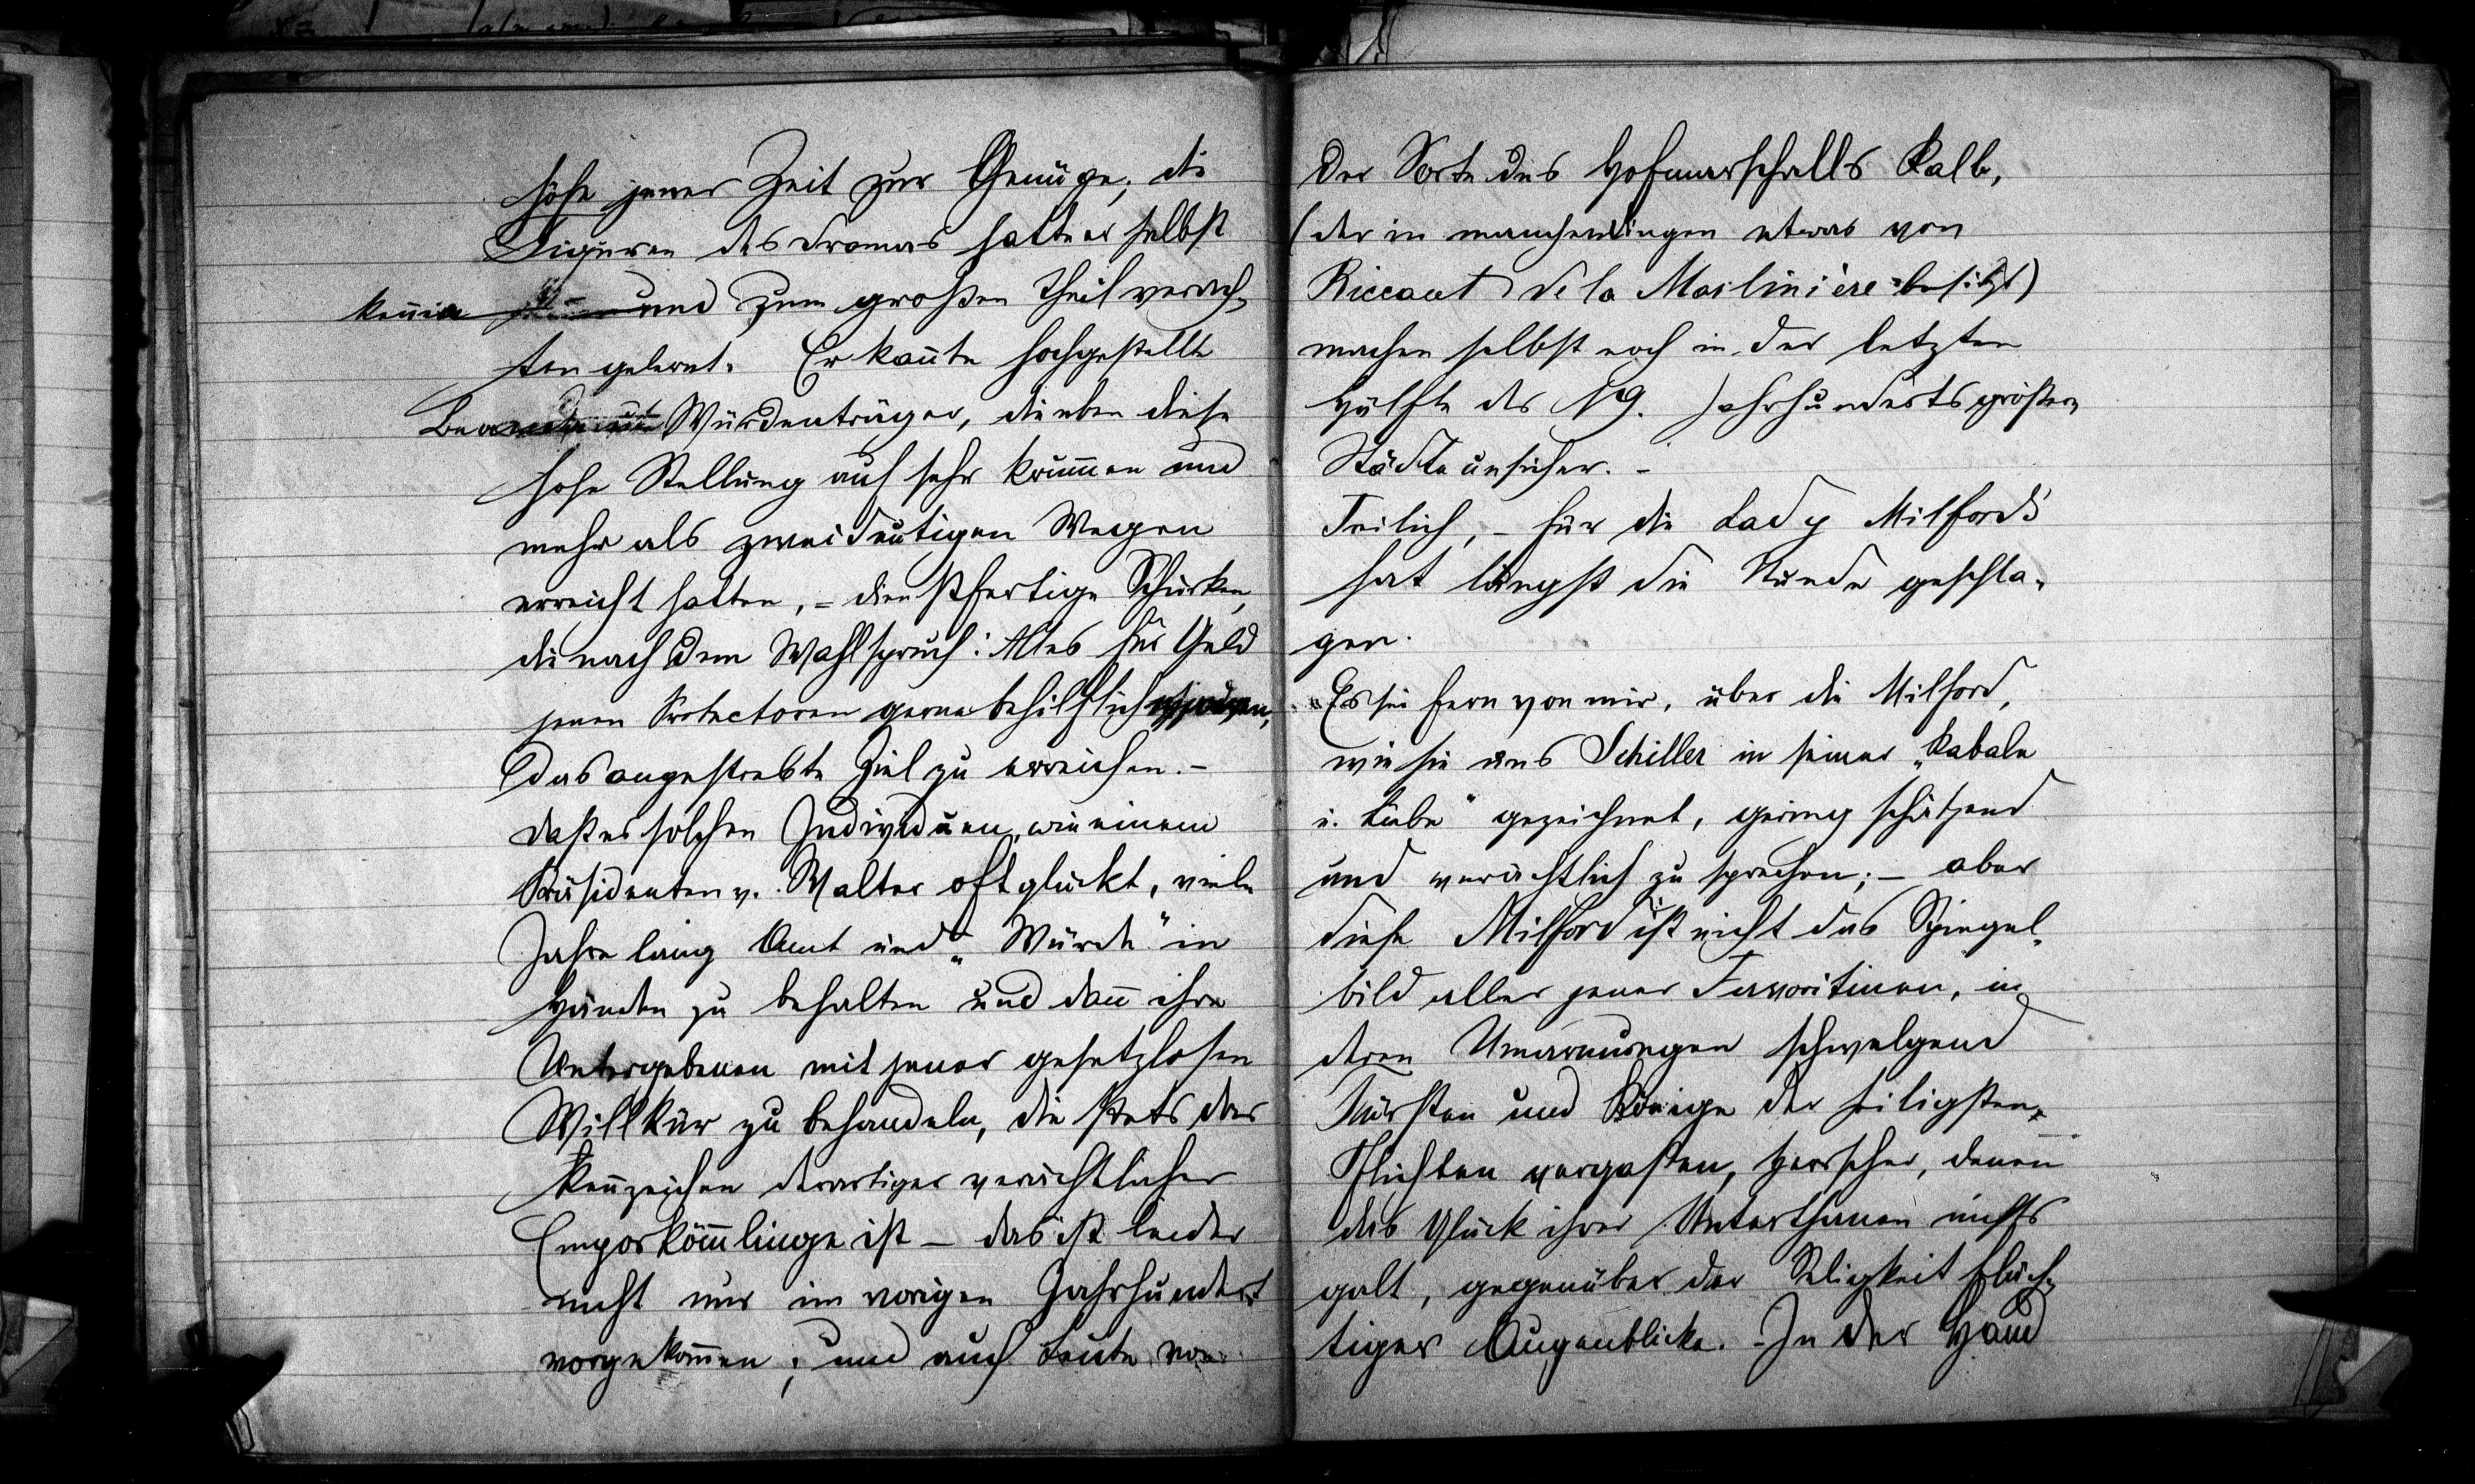 höfe jener Zeit zur Genüge; die
Figuren des Dramas hatte er selbst
kennen und zum großen Theil verach-
ten gelernt. Er kannte hochgestellte
Beamte Würdenträger, die eben diese
hohe Stellung auf sehr krummen und
mehr als zweideutigen Wegen
erreicht hatten, – dienstfertige Schurken,
die nach dem Wahlspruch: Alles für Geld
jenen Protectoren gerne behilflich
das angestrebte Ziel zu erreichen. –
daß es solchen Individuen, wie einem
Präsidenten v. Walter oft glückt, viele
Jahre lang Amt und „Würde" in
Händen zu behalten und dann ihre
Untergebenen mit jener gesetzlosen
Willkür zu behandeln, die stets das
Kennzeichen derartiger verächtlicher
Emporkömmlinge ist – das ist leider
nicht nur im vorigen Jahrhundert
vorgekommen; und auch Leute von
der Sorte des Hofmarschalls Kalb,
(der in manchen Dingen etwas von
Riccaut de la Marlinière besitzt)
machen selbst noch in der letzten
Hälfte des 19. Jahrhunderts größere
Städte unsicher. –
Freilich, – für die Lady Milford's
hat längst die Stunde geschla-
gen.
Es sei fern von mir, über die Milford,
wie sie uns Schiller in seiner „Kabale
u. Liebe" gezeichnet, gering schätzend
und verächtlich zu sprechen; – aber
diese Milford ist nicht das Spiegel-
bild aller jener Favoritinen, in
deren Umarmungen schwelgend
Fürsten und Könige der heiligsten
Pflichten vergaßen, Herrscher, denen
das Glück ihrer Unterthanen nichts
galt, gegenüber der Seligkeit flüch-
tiger Augenblicke. – In der Hand